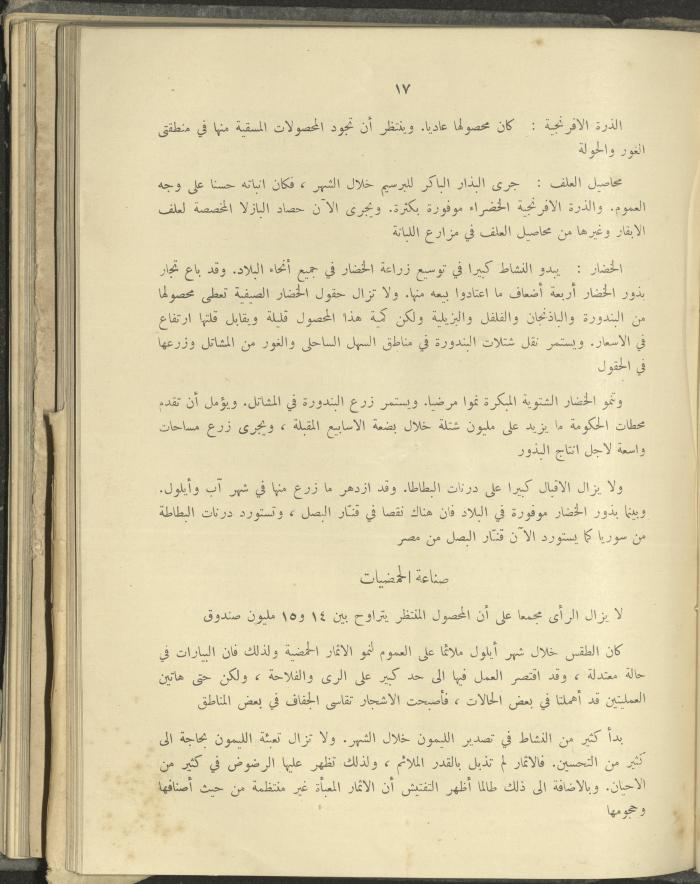 ١٧
الذرة الافرنجية : كان محصولها عاديا. وينتظر أن تجود المحصولات المسقية منها في منطقتى
الغور والحولة
محاصيل العلف : جرى البذار الباكر للبرسيم خلال الشهر ، فكان انباته حسنا على وجه
العموم. والذرة الافرنجية الخضراء موفورة بكثرة. ويجرى الآن حصاد البازلا المخصصة لعلف
الابقار وغيرها من محاصيل العلف في مزارع اللبانة
الخضار : يبدو النشاط كبيرا في توسيع زراعة الخضار في جميع أنحاء البلاد. وقد باع تجار
بذور الخضار أربعة أضعاف ما اعتادوا بيعه منها. ولا تزال حقول الخضار الصيفية تعطى محصولها
من البندورة والباذنجان والفلفل والبزيلية ولكن كمية هذا المحصول قليلة ويقابل قلتها ارتفاع
في الاسعار. ويستمر نقل شتلات البندورة في مناطق السهل الساحلى والغور من المشاتل وزرعها
في الحقول
وتنمو الخضار الشتوية المبكرة نموا مرضيا. ويستمر زرع البندورة في المشاتل. ويؤمل أن تقدم
محطات الحكومة ما يزيد على مليون شتلة خلال بضعة الاسابيع المقبلة ، ويجرى زرع مساحات
واسعة لاجل انتاج البذور
ولا يزال الاقبال كبيرا على درنات البطاطا. وقد ازدهر ما زرع منها في شهر آب وأيلول.
وبينما بذور الخضار موفورة في البلاد فان هناك نقصا في قنار البصل ، وتستورد درنات البطاطة
من سوريا كما يستورد الآن قنار البصل من مصر
صناعة الحمضيات
لا يزال الرأى مجمعا على أن المحصول المنتظر يتراوح بين ١٤ و١٥ مليون صندوق
كان الطقس خلال شهر أيلول ملائما على العموم لنمو الاثمار الحمضية ولذلك فان البيارات في
حالة معتدلة ، وقد اقتصر العمل فيها الى حد كبير على الرى والفلاحة ، ولكن حتى هاتين
العمليتين قد أهملتا في بعض الحالات ، فأصبحت الاشجار تقاسى الجفاف في بعض المناطق
بدأ كثير من النشاط في تصدير الليمون خلال الشهر. ولا تزال تعبئة الليمون بحاجة الى
كثير من التحسين. فالاثمار لم تذبل بالقدر الملائم ، ولذلك تظهر عليها الرضوض في كثير من
الاحيان. وبالاضافة الى ذلك طالما أظهر التفتيش أن الاثمار المعبأة غير منتظمة من حيث أصنافها
وحجومها